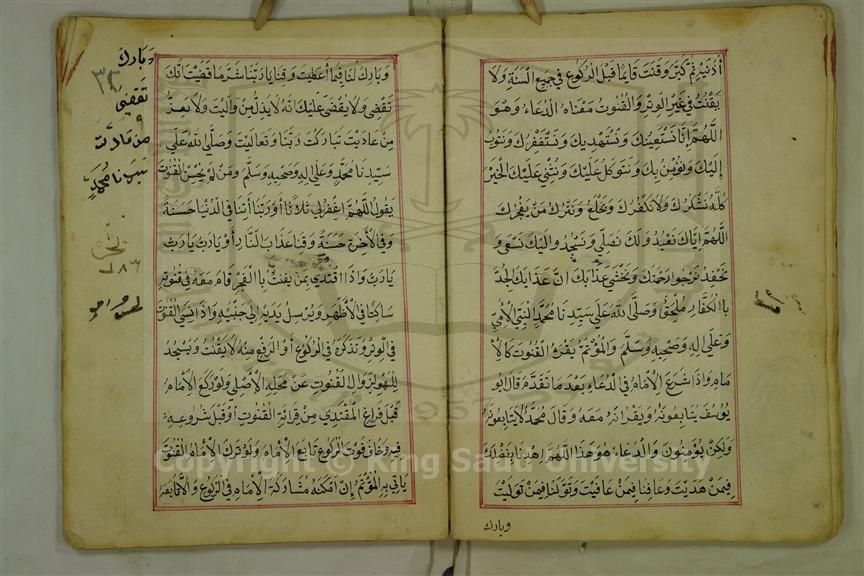 أذنيه ثم كبر وقنت قايما قبل الركوع في جميع السنة ولا
يقنت في غير الوتر والقنوت معناه الدعاء وهو
اللهم إنا نستعينك ونستهديك ونستغفرك ونتوب
إليك ونؤمن بك ونتوكل عليك ونثني عليك الخير
كله نشكرك ولا نكفرك ونخلع ونترك من يفجرك
اللهم إياك نعبد ولك نصلي ونسجد وإليك نسعى و
نحفد نرجوا رحمتك ونخشى عذابك إن عذابك الجد
باالكفار ملحق وصلى الله على سيدنا محمد النبي الأمي
وعلى اله وصحبه وسلم والمؤتم يقرء القنوت كالا
مام واذا شرع الأمام في الدعاء بعد ما تقدم قال ابو
يوسف يتابعونه ويقرانه معه وقال محمد لا يتابعونه
ولكن يؤمنون والدعاء هو هذا اللهم اهدنا بفضلك
فيمن هديت وعافنا فيمن عافيت وتولنا فيمن توليت
وبارك
وبارك لنا فيما أعطيت وقنا ياربنا شر ما قضيت انك
تقضي ولا يقضى عليك انه لا يذل من واليت ولا يعز
من عاديت تباركت ربنا وتعاليت وصلى الله على
سيدنا محمد وعلى اله وصحبه وسلم ومن لم يحسن القنوت
يقول اللهم اغفر لي ثلاثا أو ربنا أتنا في الدنيا حسنة
وفي الأخرة حسنة وقنا عذاب النار أو يارب يارب
يارب واذا اقتدى بمن يقنت باالفجر قام معه في قنوته
ساكتا في الأظهر ويرسل يديه الى جنبيه واذا نسي القنوت
في الوتر وتذكره في الركوع أو الرفع منه لا يقنت ويسجد
للسهو لزوال القنوت عن محله الأصلي ولو ركع الأمام
قبل فراغ المقتدي من قرائة القنوت أو قبل شروعه
فيه وخاف فوت الركوع تابع الأمام ولو ترك الأمام القنوت
ياتي به المؤتم إن امكنه مشاركة الأمام في الركوع والا تابعه
وبارك
٣٢
تقضي
من عاديت
سيدنا محمد
Copyright © King Saud University
1957